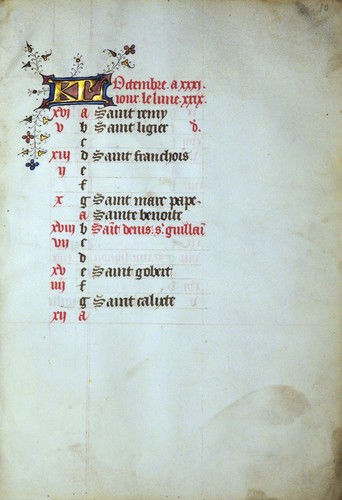 10
KL Octembre. a xxxi.
iour. le lune. xxix.
xvi a Saint remy
v b Saint ligier d.
c
xiii d Saint franchois
ii e
f
x g Saint marc pape.
a Sainte benoite
xviii b Saint denis. s. guillai
vii c
d
xv e Saint gobert
iiii f
g Saint calixte
xii a